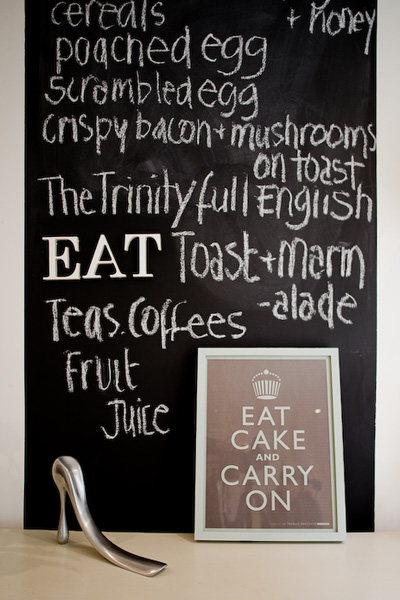 cereals + Honey
poached egg
scrambled egg
crispy bacon + mushrooms
on toast
The Trinity full English
EAT Toast + Marm
-alade
Teas. Coffees
Fruit
Juice
EAT
CAKE
AND
CARRY
ON